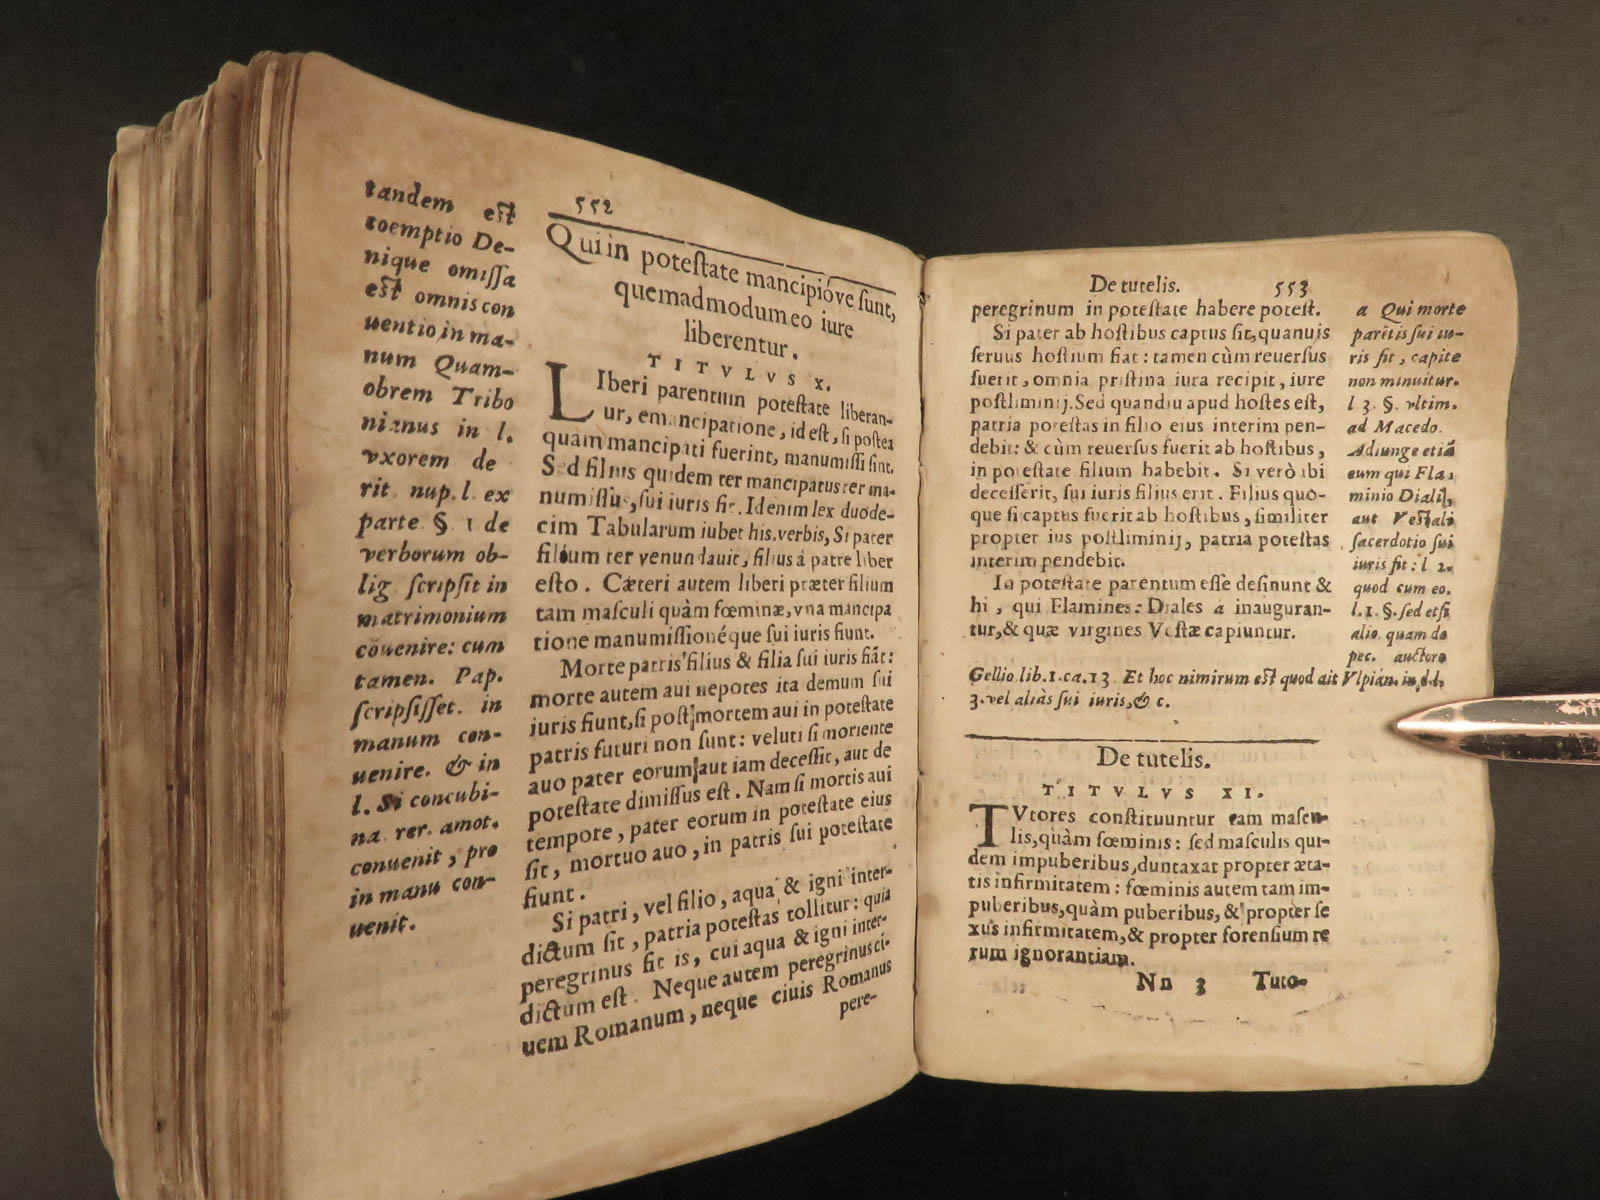 552
Qui in potestate mancipióve sunt,
quemadmodum eo iure
liberentur.
TITVLVS X.
LIberi parentum potestate liberan-
ur, emancipatione, id est, si postea
quàm mancipati fuerint, manumissi sint.
Sed filius quidem ter mancipatus ter ma-
numissus, sui iuris fit. Id enim lex duode-
cim Tabularum iubet his verbis, Si pater
filium ter venundauit, filius á patre liber
esto. Cæteri autem liberi præter filium
tam masculi quàm fœminæ, vna mancipa
tione manumissionéque sui iuris fiunt.
Morte patris filius & filia sui iuris fiāt:
morte autem aui nepotes ita demum sui
iuris fiunt, si post mortem aui in potestate
patris futuri non sunt: veluti si moriente
auo pater eorum aut iam decessit, aut de
potestate dimissus est. Nam si mortis aui
tempore, pater eorum in potestate eius
sit, mortuo auo, in patris sui potestate
fiunt.
Si patri, vel filio, aqua & igni inter-
dictum sit, patria potestas tollitur: quia
peregrinus fit is, cui aqua & igni inter-
dictum est. Neque autem peregrinus ci-
uem Romanum, neque ciuis Romanus
pere-
tandem est
coemptio De-
nique omissa
est omnis con
uentio, in ma-
num Quam-
obrem Tribo
nianus in l.
vxorem de
rit. nup. l. ex
parte §. 1 de
verborum ob-
lig scripsit in
matrimonium
cōuenire: cum
tamen. Pap.
scripsisset. in
manum con-
uenire. & in
l. Si concubi-
na rer. amot.
conuenit, pro
in manu con-
uenit.
De tutelis. 553
peregrinum in potestate habere potest.
Si pater ab hostibus captus sit, quanuis
seruus hostium fiat: tamen cùm reuersus
fuerit, omnia pristina iura recipit, iure
postliminij. Sed quandiu apud hostes est,
patria potestas in filio eius interim pen-
debit: & cùm reuersus fuerit ab hostibus,
in potestate filium habebit. Si verò ibi
decesserit, sui iuris filius erit. Filius quo-
que si captus fuerit ab hostibus, similiter
propter ius postliminij, patria potestas
interim pendebit.
In potestate parentum esse desinunt &
hi, qui Flamines: Diales a inauguran-
tur, & quæ virgines Vestæ capiuntur.
a Qui morte
parētis sui iu-
ris fit, capite
non minuitur.
l 3. §. vltim.
ad Macedo.
Adiunge etiā
eum qui Fla-
minio Diali,
aut Vestali
sacerdotio sui
iuris fit: l 2.
quod cum eo.
l. 1. §. sed etsi
alio. quam de
pec. auctore
Gellio lib. 1. ca. 13 Et hoc nimirum est quod ait Vlpian. in d. l.
3. vel aliàs sui iuris, & c.
De tutelis.
TITVLVS XI.
TVtores constituuntur tam mascu-
lis, quàm fœminis: sed masculis qui-
dem impuberibus, duntaxat propter æta-
tis infirmitatem: fœminis autem tam im-
puberibus, quàm puberibus, & propter se
xus infirmitatem, & propter forensium re
rum ignorantiam.
Nn 3 Tuto-